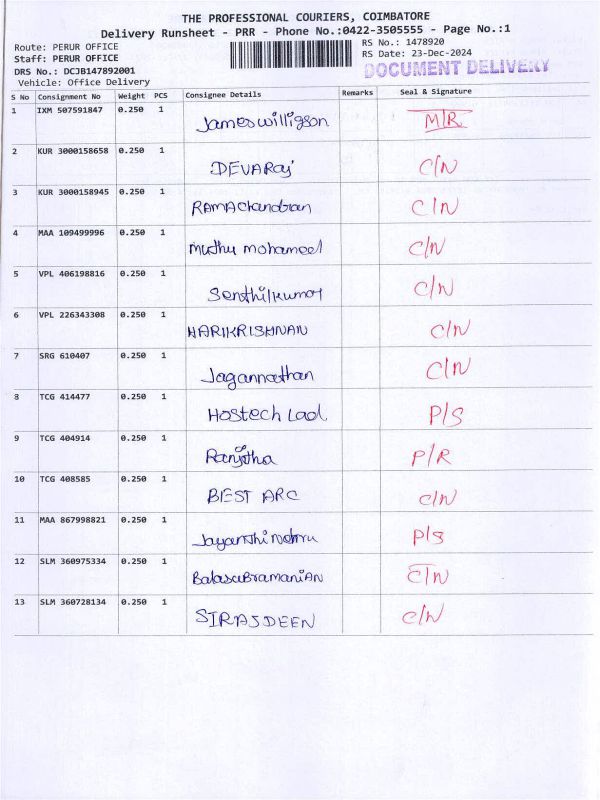 THE PROFESSIONAL COURIERS, COIMBATORE
Delivery Runsheet - PRR - Phone No.:0422-3505555 - Page No.:1
Route: PERUR OFFICE
Staff: PERUR OFFICE
DRS No.: DCJB147892001
Vehicle: Office Delivery
RS No.: 1478920
RS Date: 23-Dec-2024
DOCUMENT DELIVERY
S No Consignment No Weight PCS Consignee Details Remarks Seal & Signature
1 IXM 507591847 0.250 1 Jameswilligson M/R
2 KUR 3000158658 0.250 1 DEVARaj C/N
3 KUR 3000158945 0.250 1 RAMAchandran C/N
4 MAA 109499996 0.250 1 muthu mohameed C/N
5 VPL 406198816 0.250 1 Senthilkumar C/N
6 VPL 226343308 0.250 1 HARIKRISHNAN C/N
7 SRG 610407 0.250 1 Jagannathan C/N
8 TCG 414477 0.250 1 Hostech Lad P/S
9 TCG 404914 0.250 1 Ranjitha P/R
10 TCG 408585 0.250 1 BEST ARC C/N
11 MAA 867998821 0.250 1 Jayanthi Nehru P/S
12 SLM 360975334 0.250 1 BalasuBramaniAN C/N
13 SLM 360728134 0.250 1 SIRAJDEEN C/N